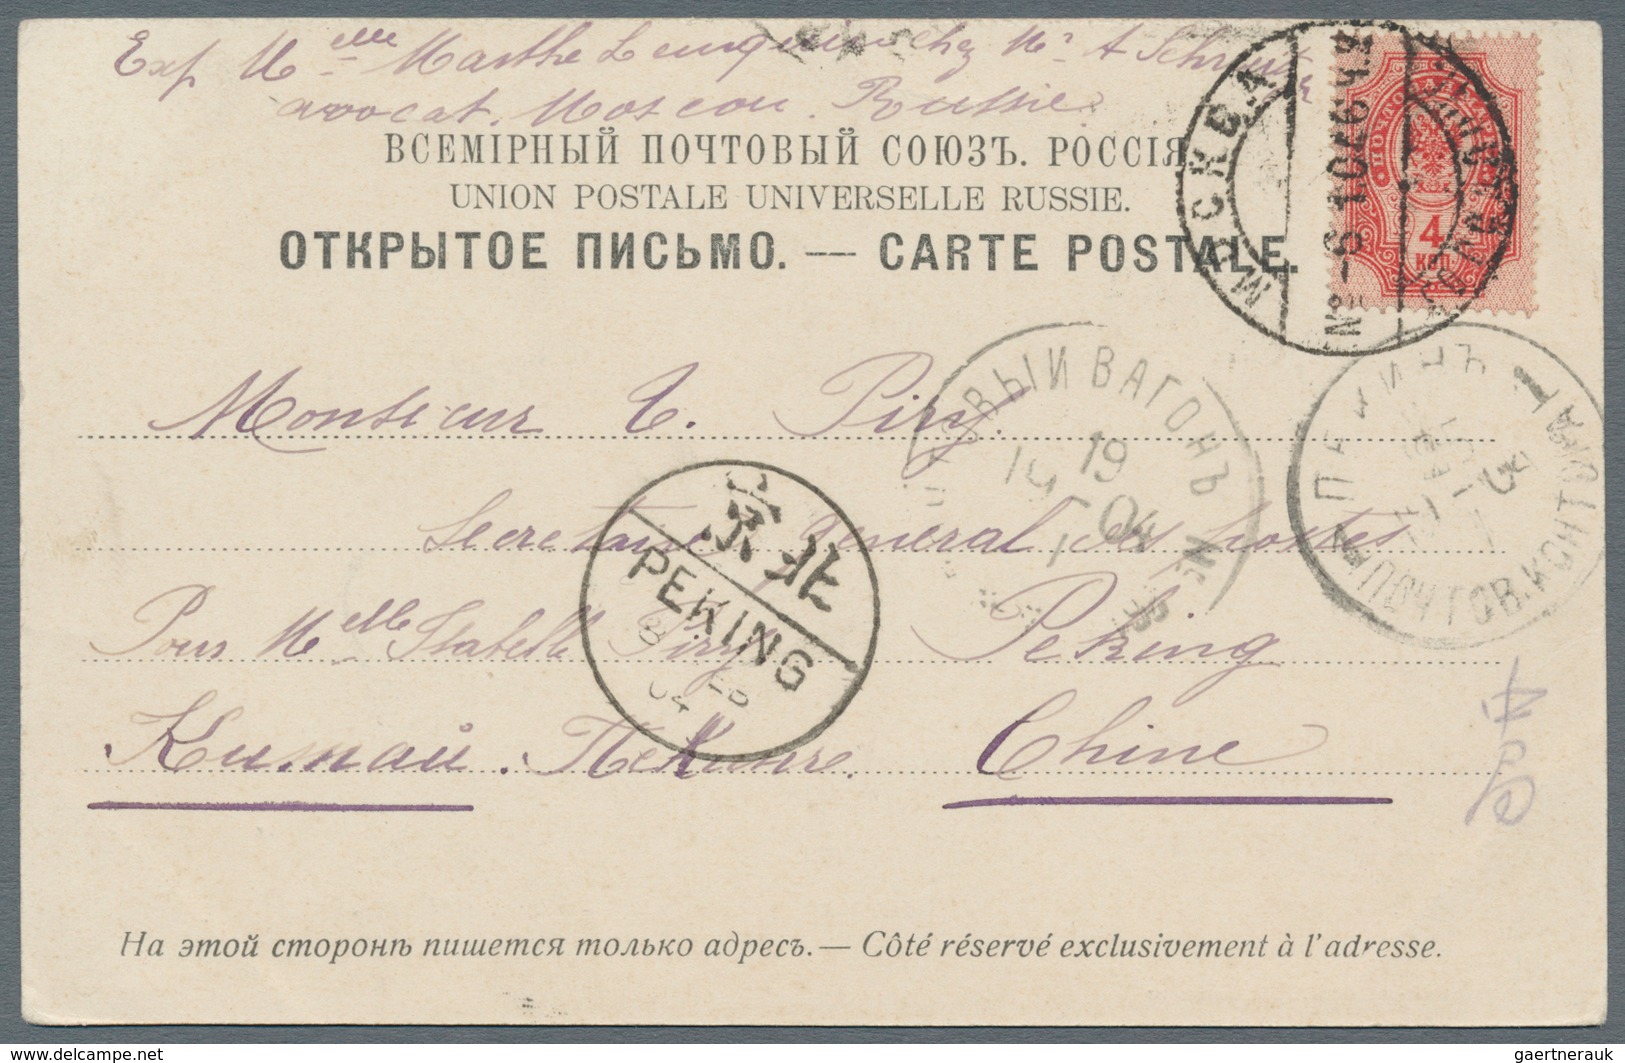 Exp Melle Marthe chez Mr A
avocat. Moscou. Russie.
ВСЕМІРНЫЙ ПОЧТОВЫЙ СОЮЗЪ. РОССІЯ
UNION POSTALE UNIVERSELLE RUSSIE.
ОТКРЫТОЕ ПИСЬМО. — CARTE POSTALE.
МОСКВА
4
КОП.
Monsieur Piry.
ВЫЙ ВАГОНЪ №
19
04
ПЕКИНЪ
ПОЧТОВ. КОНТОРА
Secretaire General des postes
京北
PEKING
8 -5
04
Pour Melle Isabelle Piry Peking
Китай. Пекинъ. Chine
中
На этой сторонѣ пишется только адресъ. — Côté réservé exclusivement à l'adresse.
www.delcampe.net
gaertnerauk